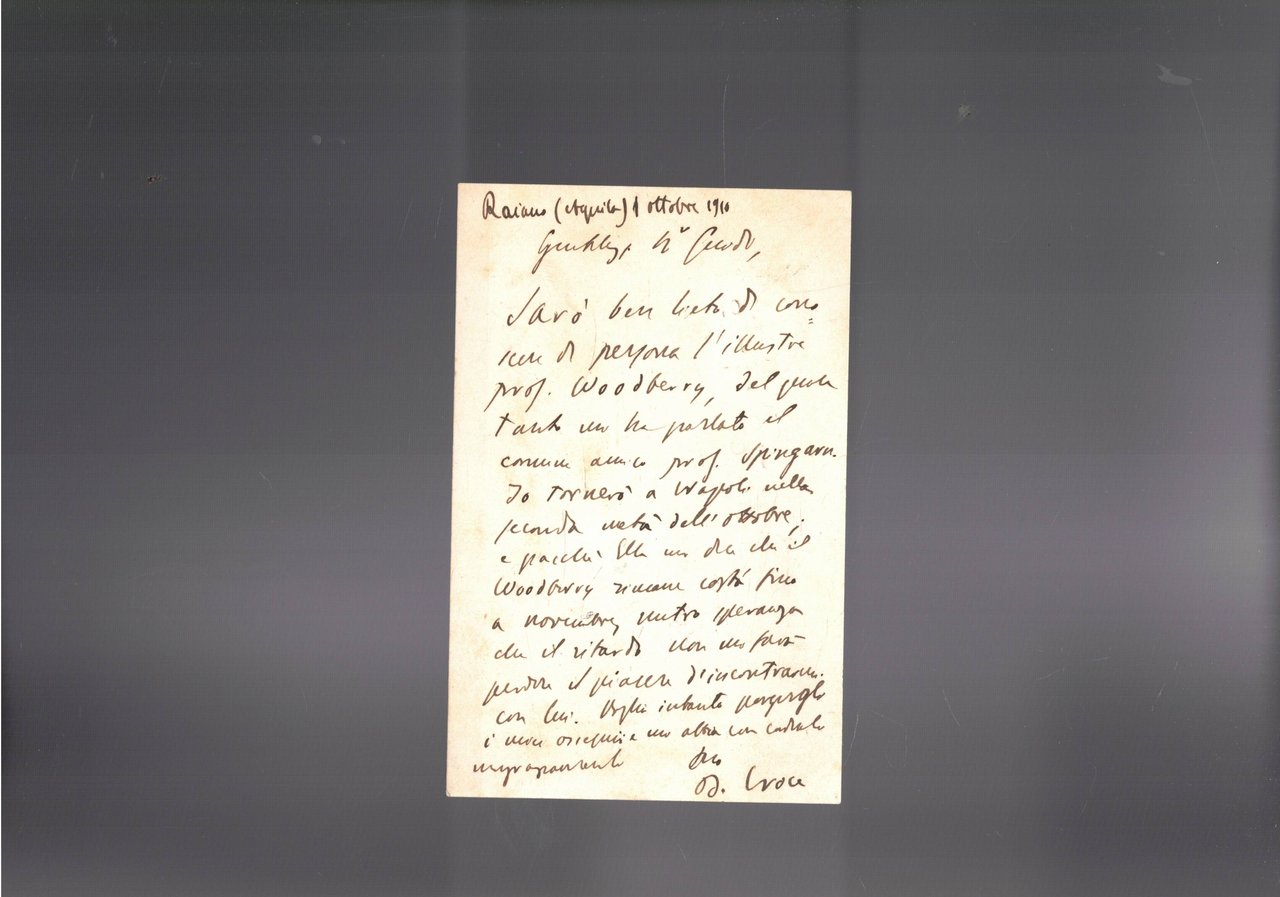 Raiano (Aquila) 1 ottobre 1910
Sarò ben lieto di cono=
scere di persona l'illustre
prof. Woodberry, del quale
tanto mi ha parlato il
comune amico prof. Spingarn.
Io tornerò a Napoli nella
seconda metà dell'ottobre;
e poiché Ella mi dice che il
Woodberry rimane costà fino
a novembre, nutro speranza
che il ritardo non mi farà
perdere il piacere d'incontrarmi
con lui. Voglia intanto porgergli
i miei ossequii e mi abbia con cordiale
ringraziamento suo
B. Croce